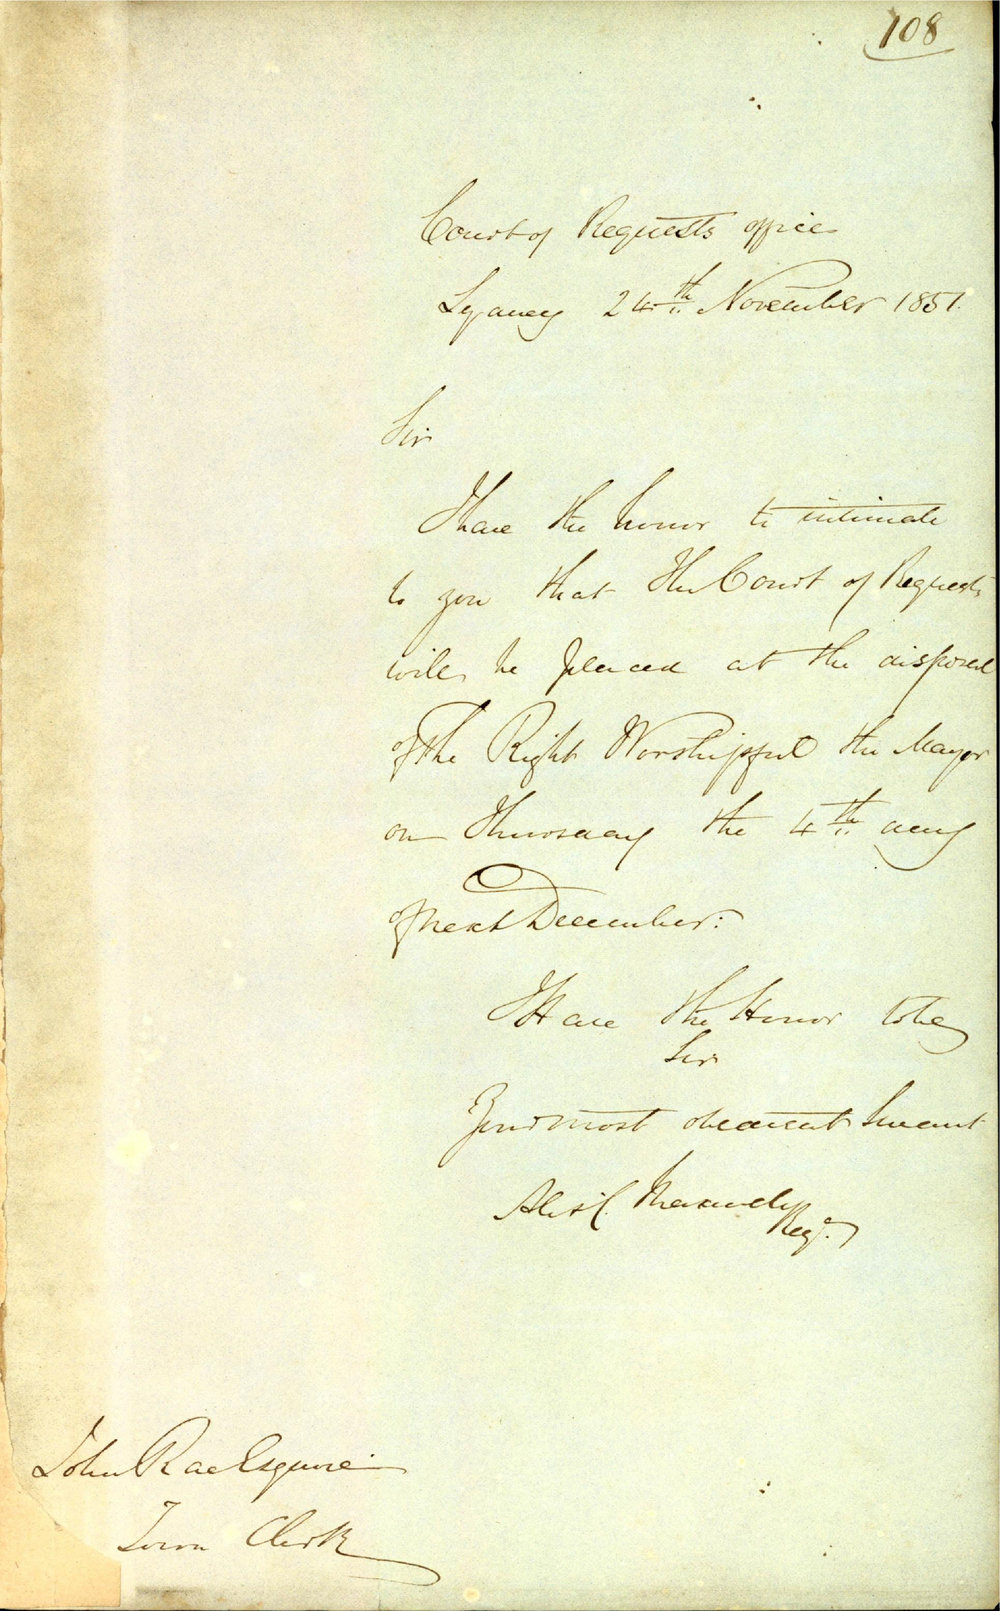 108
Court of Requests office
Sydney 24th November 1851.
Sir
I have the honor to intimate
to you that The Court of Requests
will be placed at the disposal
of The Right Worshipful the Mayor
on Thursday the 4th day
of next December:
I Have the Honor to be
Sir
Your most obedient Servant
Regr.
John Rae Esquire
Town Clerk